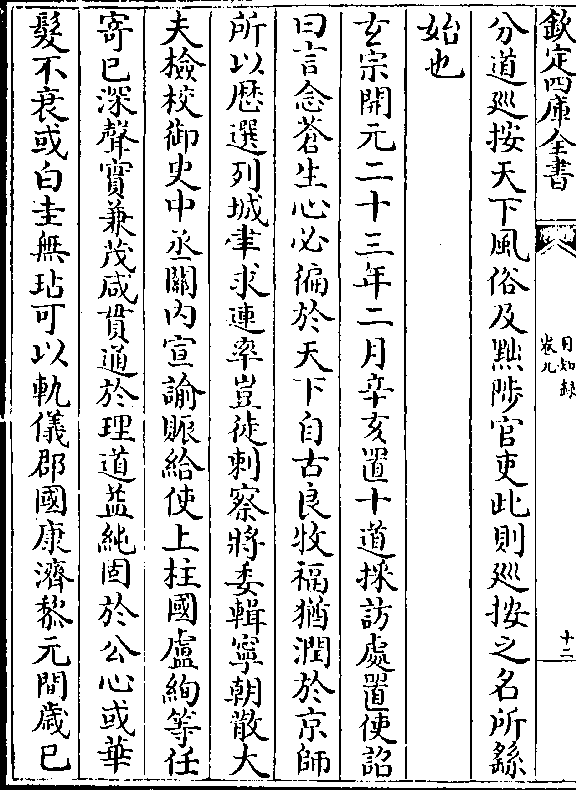 欽定四庫全書
日知録
卷九
十二
分道廵按天下風俗及黜陟官吏此則廵按之名所繇
始也
玄宗開元二十三年二月辛亥置十道採訪處置使詔
曰言念蒼生心必徧於天下自古良牧福猶潤於京師
所以歴選列城聿求連率豈徒刺察將委輯寧朝散大
夫檢校御史中丞關内宣諭賑給使上柱國盧絢等任
寄已深聲實兼茂咸貫通於理道益純固於公心或華
髮不衰或白圭無玷可以軌儀郡國康濟黎元間歲已